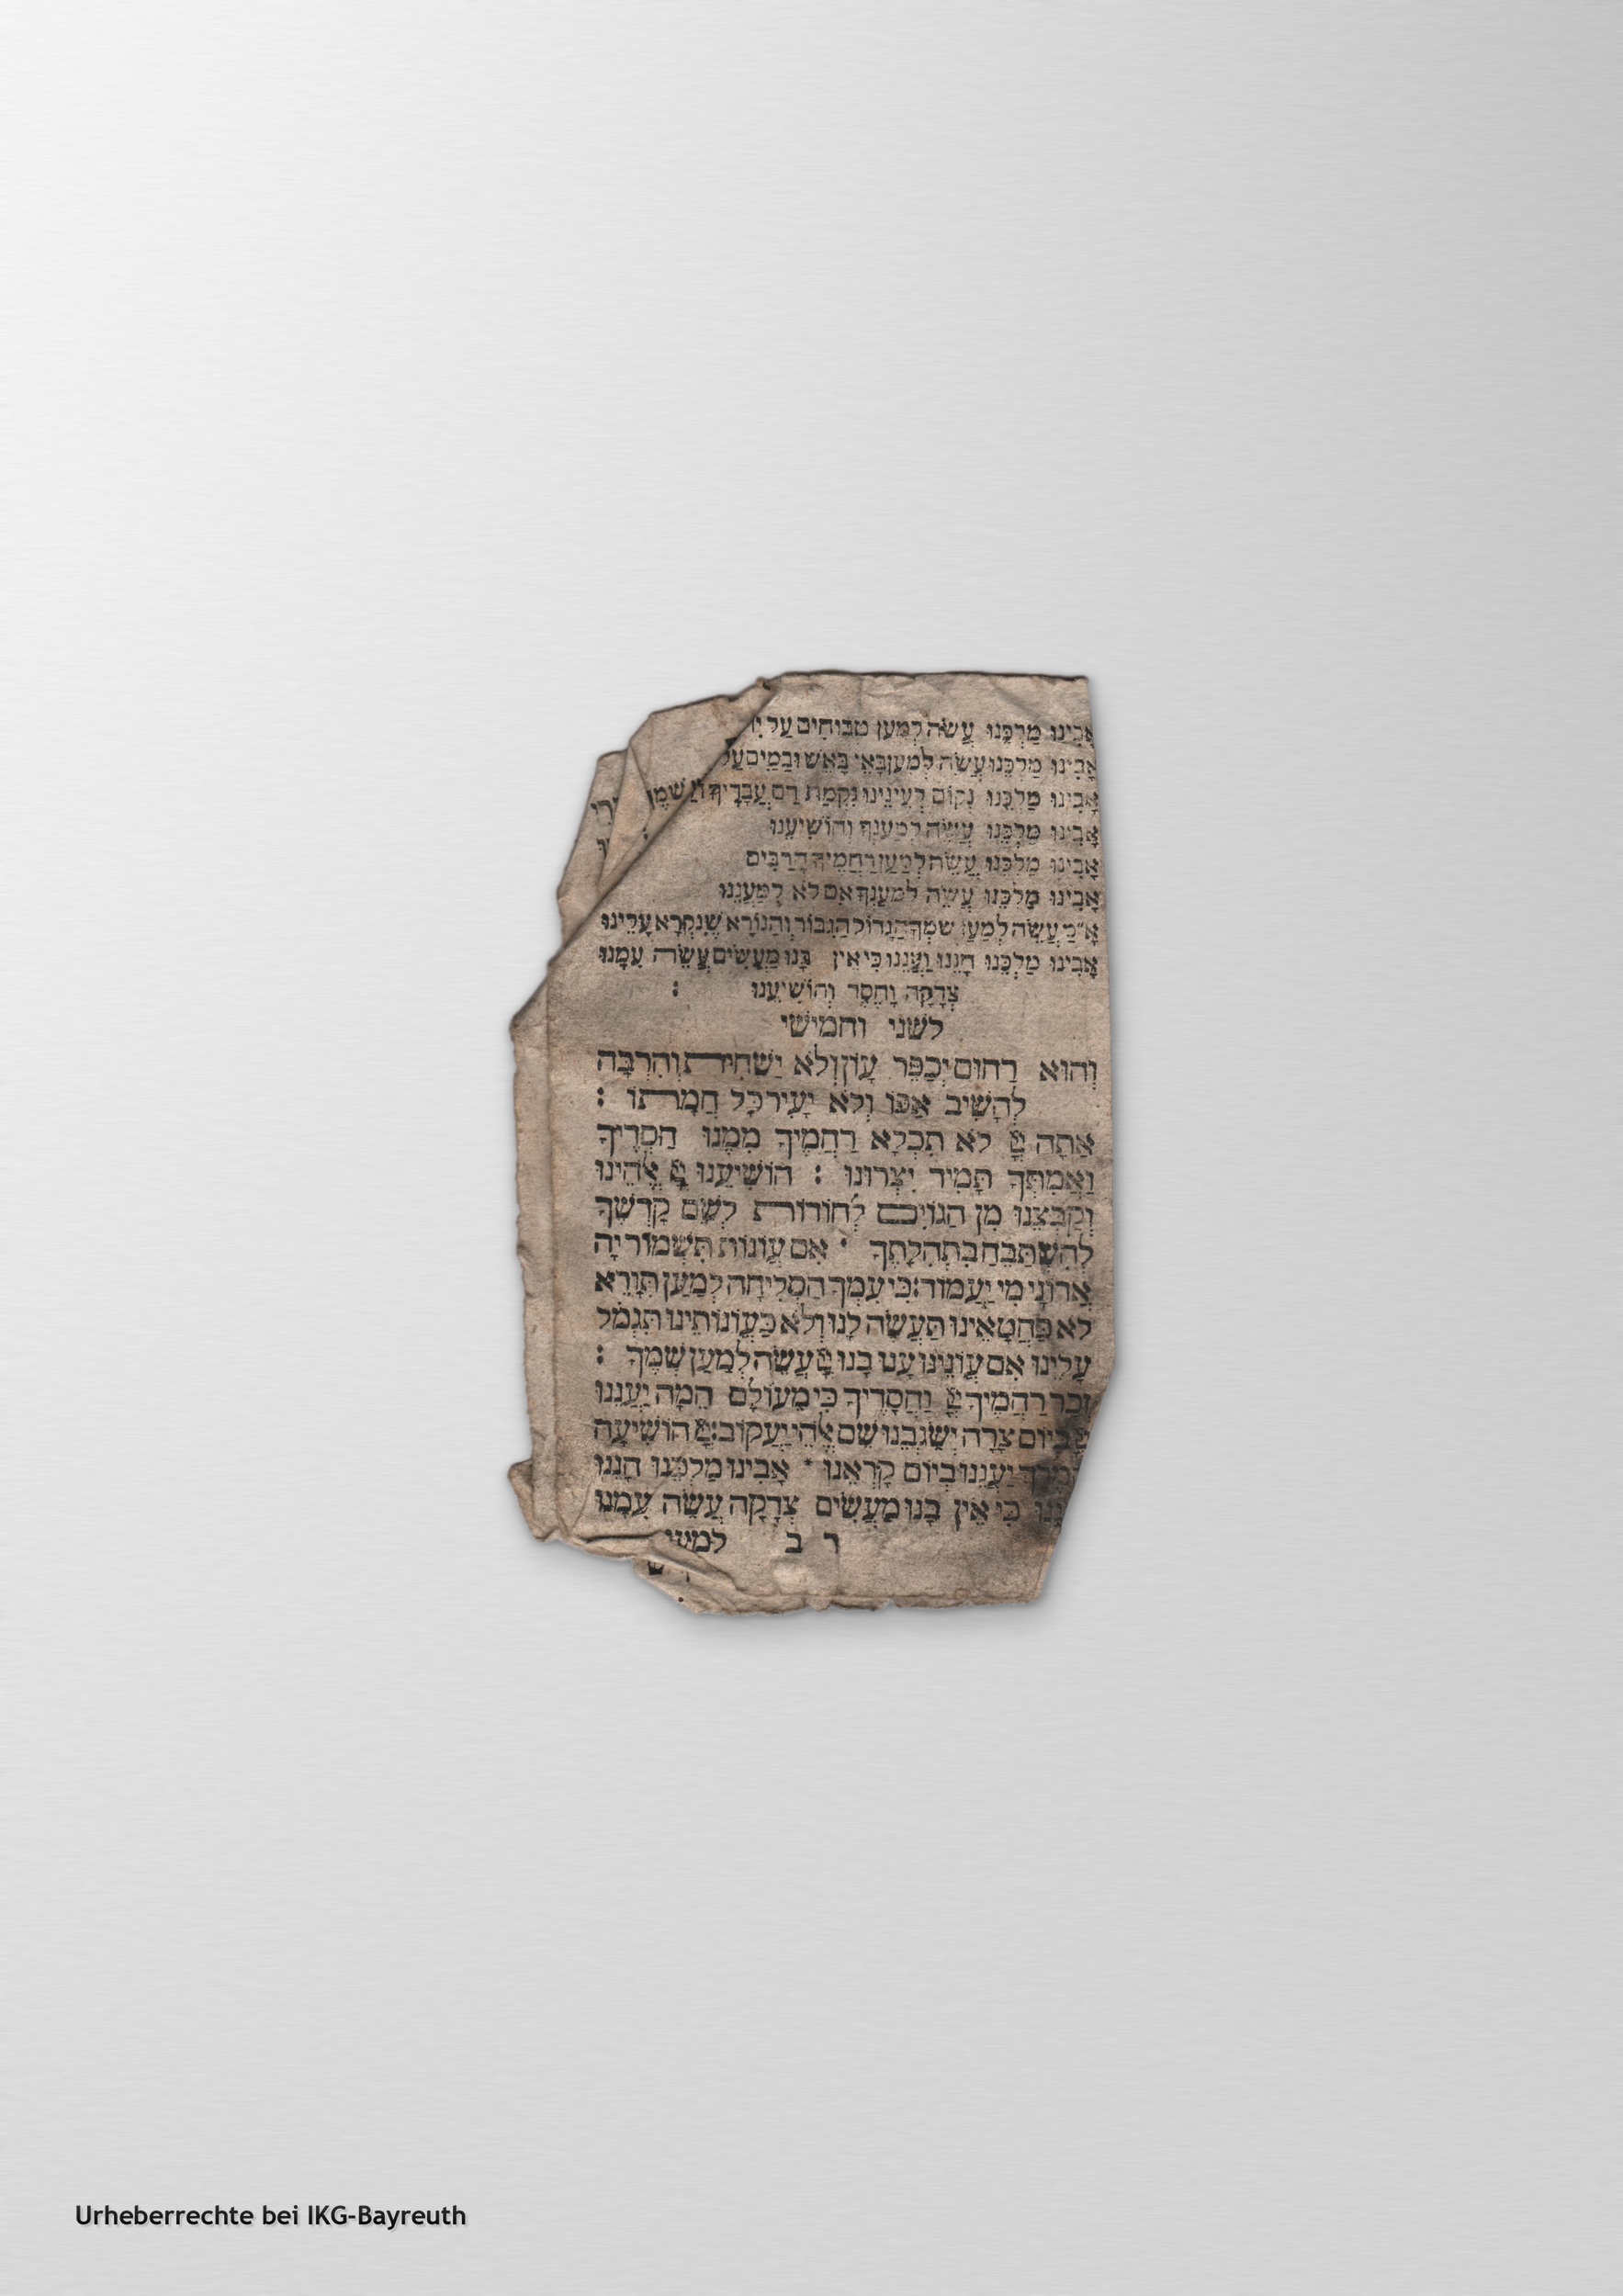 אָבִינוּ מַלְכֵּנוּ עֲשֵׂה לְמַעַן טְבוּחִים עַל
אָבִינוּ מַלְכֵּנוּ עֲשֵׂה לְמַעַן בָּאֵי בָאֵשׁ וּבַמַּיִם עַל
אָבִינוּ מַלְכֵּנוּ נְקוֹם לְעֵינֵינוּ נִקְמַת דַּם עֲבָדֶיךָ
אָבִינוּ מַלְכֵּנוּ עֲשֵׂה לְמַעַנְךָ וְהוֹשִׁיעֵנוּ
אָבִינוּ מַלְכֵּנוּ עֲשֵׂה לְמַעַן רַחֲמֶיךָ הָרַבִּים
אָבִינוּ מַלְכֵּנוּ עֲשֵׂה לְמַעַנְךָ אִם לֹא לְמַעֲנֵנוּ
א״מ עֲשֵׂה לְמַעַן שִׁמְךָ הַגָּדוֹל הַגִּבּוֹר וְהַנּוֹרָא שֶׁנִּקְרָא עָלֵינוּ
אָבִינוּ מַלְכֵּנוּ חָנֵּנוּ וַעֲנֵנוּ כִּי אֵין בָּנוּ מַעֲשִׂים עֲשֵׂה עִמָּנוּ
צְדָקָה וָחֶסֶד וְהוֹשִׁיעֵנוּ :
לשני וחמישי
וְהוּא רַחוּם יְכַפֵּר עָוֹן וְלֹא יַשְׁחִית וְהִרְבָּה
לְהָשִׁיב אַפּוֹ וְלֹא יָעִיר כָּל חֲמָתוֹ :
אַתָּה יְיָ לֹא תִכְלָא רַחֲמֶיךָ מִמֶּנּוּ חַסְדְּךָ
וַאֲמִתְּךָ תָּמִיד יִצְּרוּנוּ : הוֹשִׁיעֵנוּ יְיָ אֱלֹהֵינוּ
וְקַבְּצֵנוּ מִן הַגּוֹיִם לְהוֹדוֹת לְשֵׁם קָדְשֶׁךָ
לְהִשְׁתַּבֵּחַ בִּתְהִלָּתֶךָ · אִם עֲוֹנוֹת תִּשְׁמוֹר יָהּ
אֲדֹנָי מִי יַעֲמוֹד : כִּי עִמְּךָ הַסְּלִיחָה לְמַעַן תִּוָּרֵא
לֹא כַחֲטָאֵינוּ תַּעֲשֶׂה לָּנוּ וְלֹא כַּעֲוֹנוֹתֵינוּ תִּגְמֹל
עָלֵינוּ אִם עֲוֹנֵינוּ עָנוּ בָנוּ יְיָ עֲשֵׂה לְמַעַן שְׁמֶךָ :
זְכֹר רַחֲמֶיךָ יְיָ וַחֲסָדֶיךָ כִּי מֵעוֹלָם הֵמָּה יַעֲנֵנוּ
יְיָ בְּיוֹם צָרָה יְשַׂגְּבֵנוּ שֵׁם אֱלֹהֵי יַעֲקוֹב : יְיָ הוֹשִׁיעָה
הַמֶּלֶךְ יַעֲנֵנוּ בְיוֹם קָרְאֵנוּ · אָבִינוּ מַלְכֵּנוּ חָנֵּנוּ
כִּי אֵין בָּנוּ מַעֲשִׂים צְדָקָה עֲשֵׂה עִמָּנוּ
ד ב למען
Urheberrechte bei IKG-Bayreuth